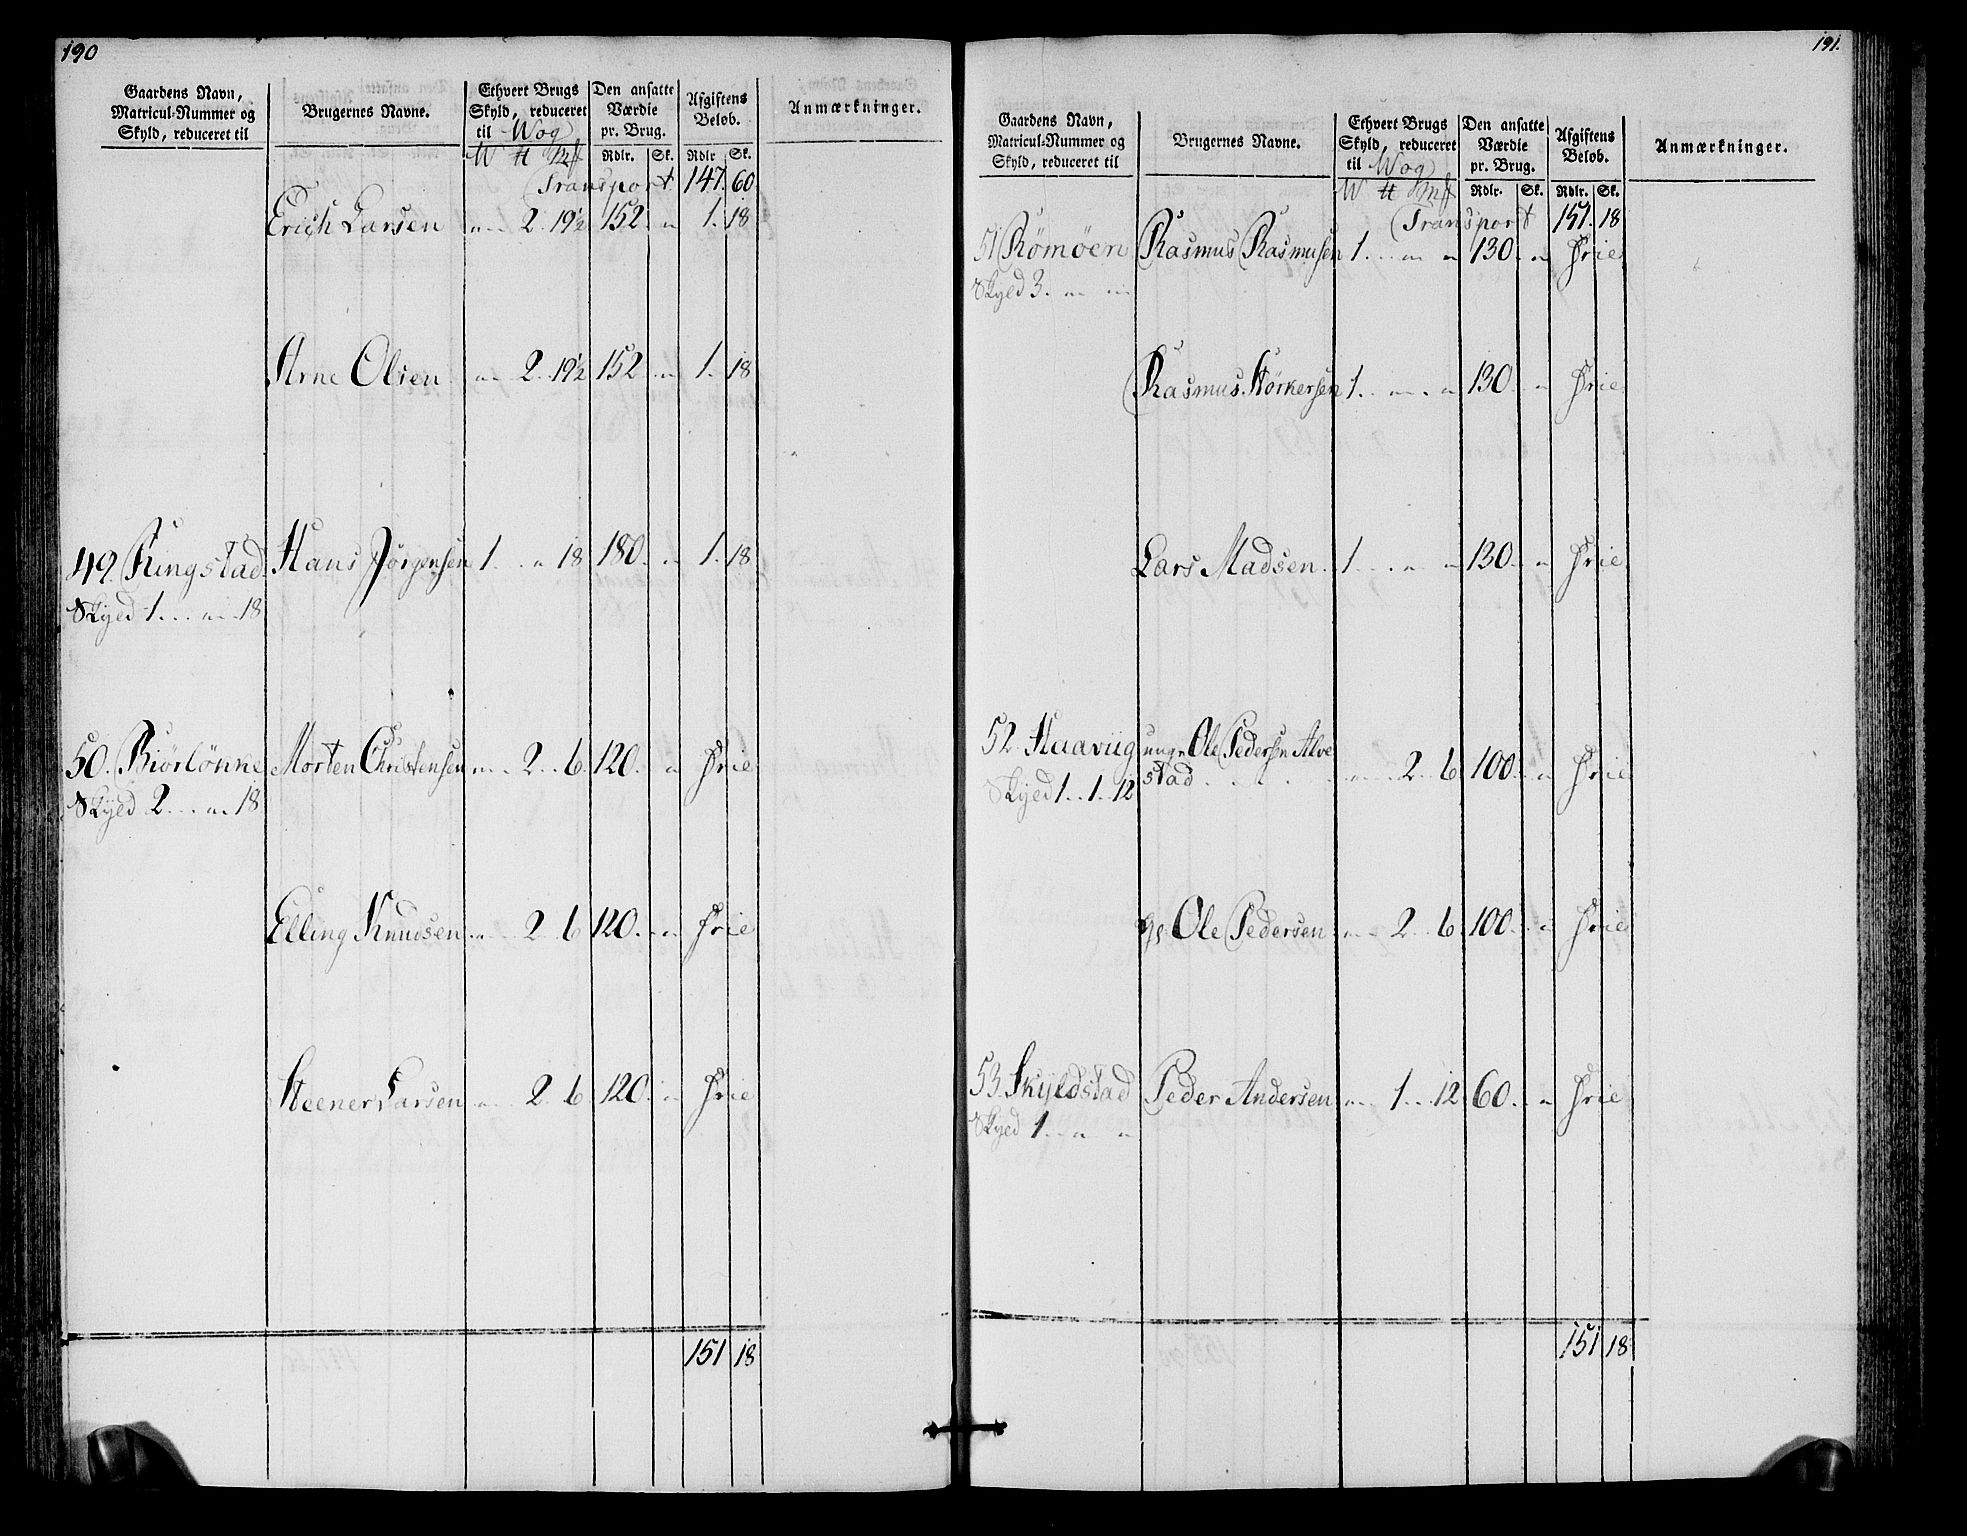 190
Gaardens Navn, Matricul-Nummer og Skyld, reduceret til
Brugernes Navne.
Ethvert Brugs Skyld, reduceret til Wog
W ℔ Mk
Den ansatte Værdie pr. Brug.
Rdlr. Sk.
Afgiftens Beløb.
Rdlr Sk.
Anmærkninger.
Transport 147. 60
Erich Larsen " 2. 19½ 152 " 1. 18
Arne Olsen " 2. 19½ 152 " 1. 18
49 Ringstad Hans Jørgensen 1. " 18 180. " 1. 18
Skyld 1. " 18
50. Biørlønne Morten Christensen " 2. 6. 120. " Frie
Skyld 2. " 18
Elling Knudsen " 2. 6 120. " Frie
Steener Larsen " 2. 6. 120. " Frie
151 18
191.
Gaardens Navn, Matricul-Nummer og Skyld, reduceret til
Brugernes Navne.
Ethvert Brugs Skyld, reduceret til Wog
W ℔ Mk
Den ansatte Værdie pr. Brug.
Rdlr. Sk.
Afgiftens Beløb.
Rdlr. Sk.
Anmærkninger.
Transport 151. 18
51 Rømøen Rasmus Rasmusen 1. " " 130. " Frie
Skyld 3. " "
Rasmus Størkersen 1. " " 130. " Frie
Lars Madsen. 1. " " 130. " Frie
52 Haaviig ungr Ole Pedersn Alve
Skyld 1. 1. 12 stad " 2. 6 100. " Frie
Ole Pedersen " 2. 6 100. " Frie
53 Skyldstad Peder Andersen " 1. 12 60. " Frie
Skyld 1. " "
151 18